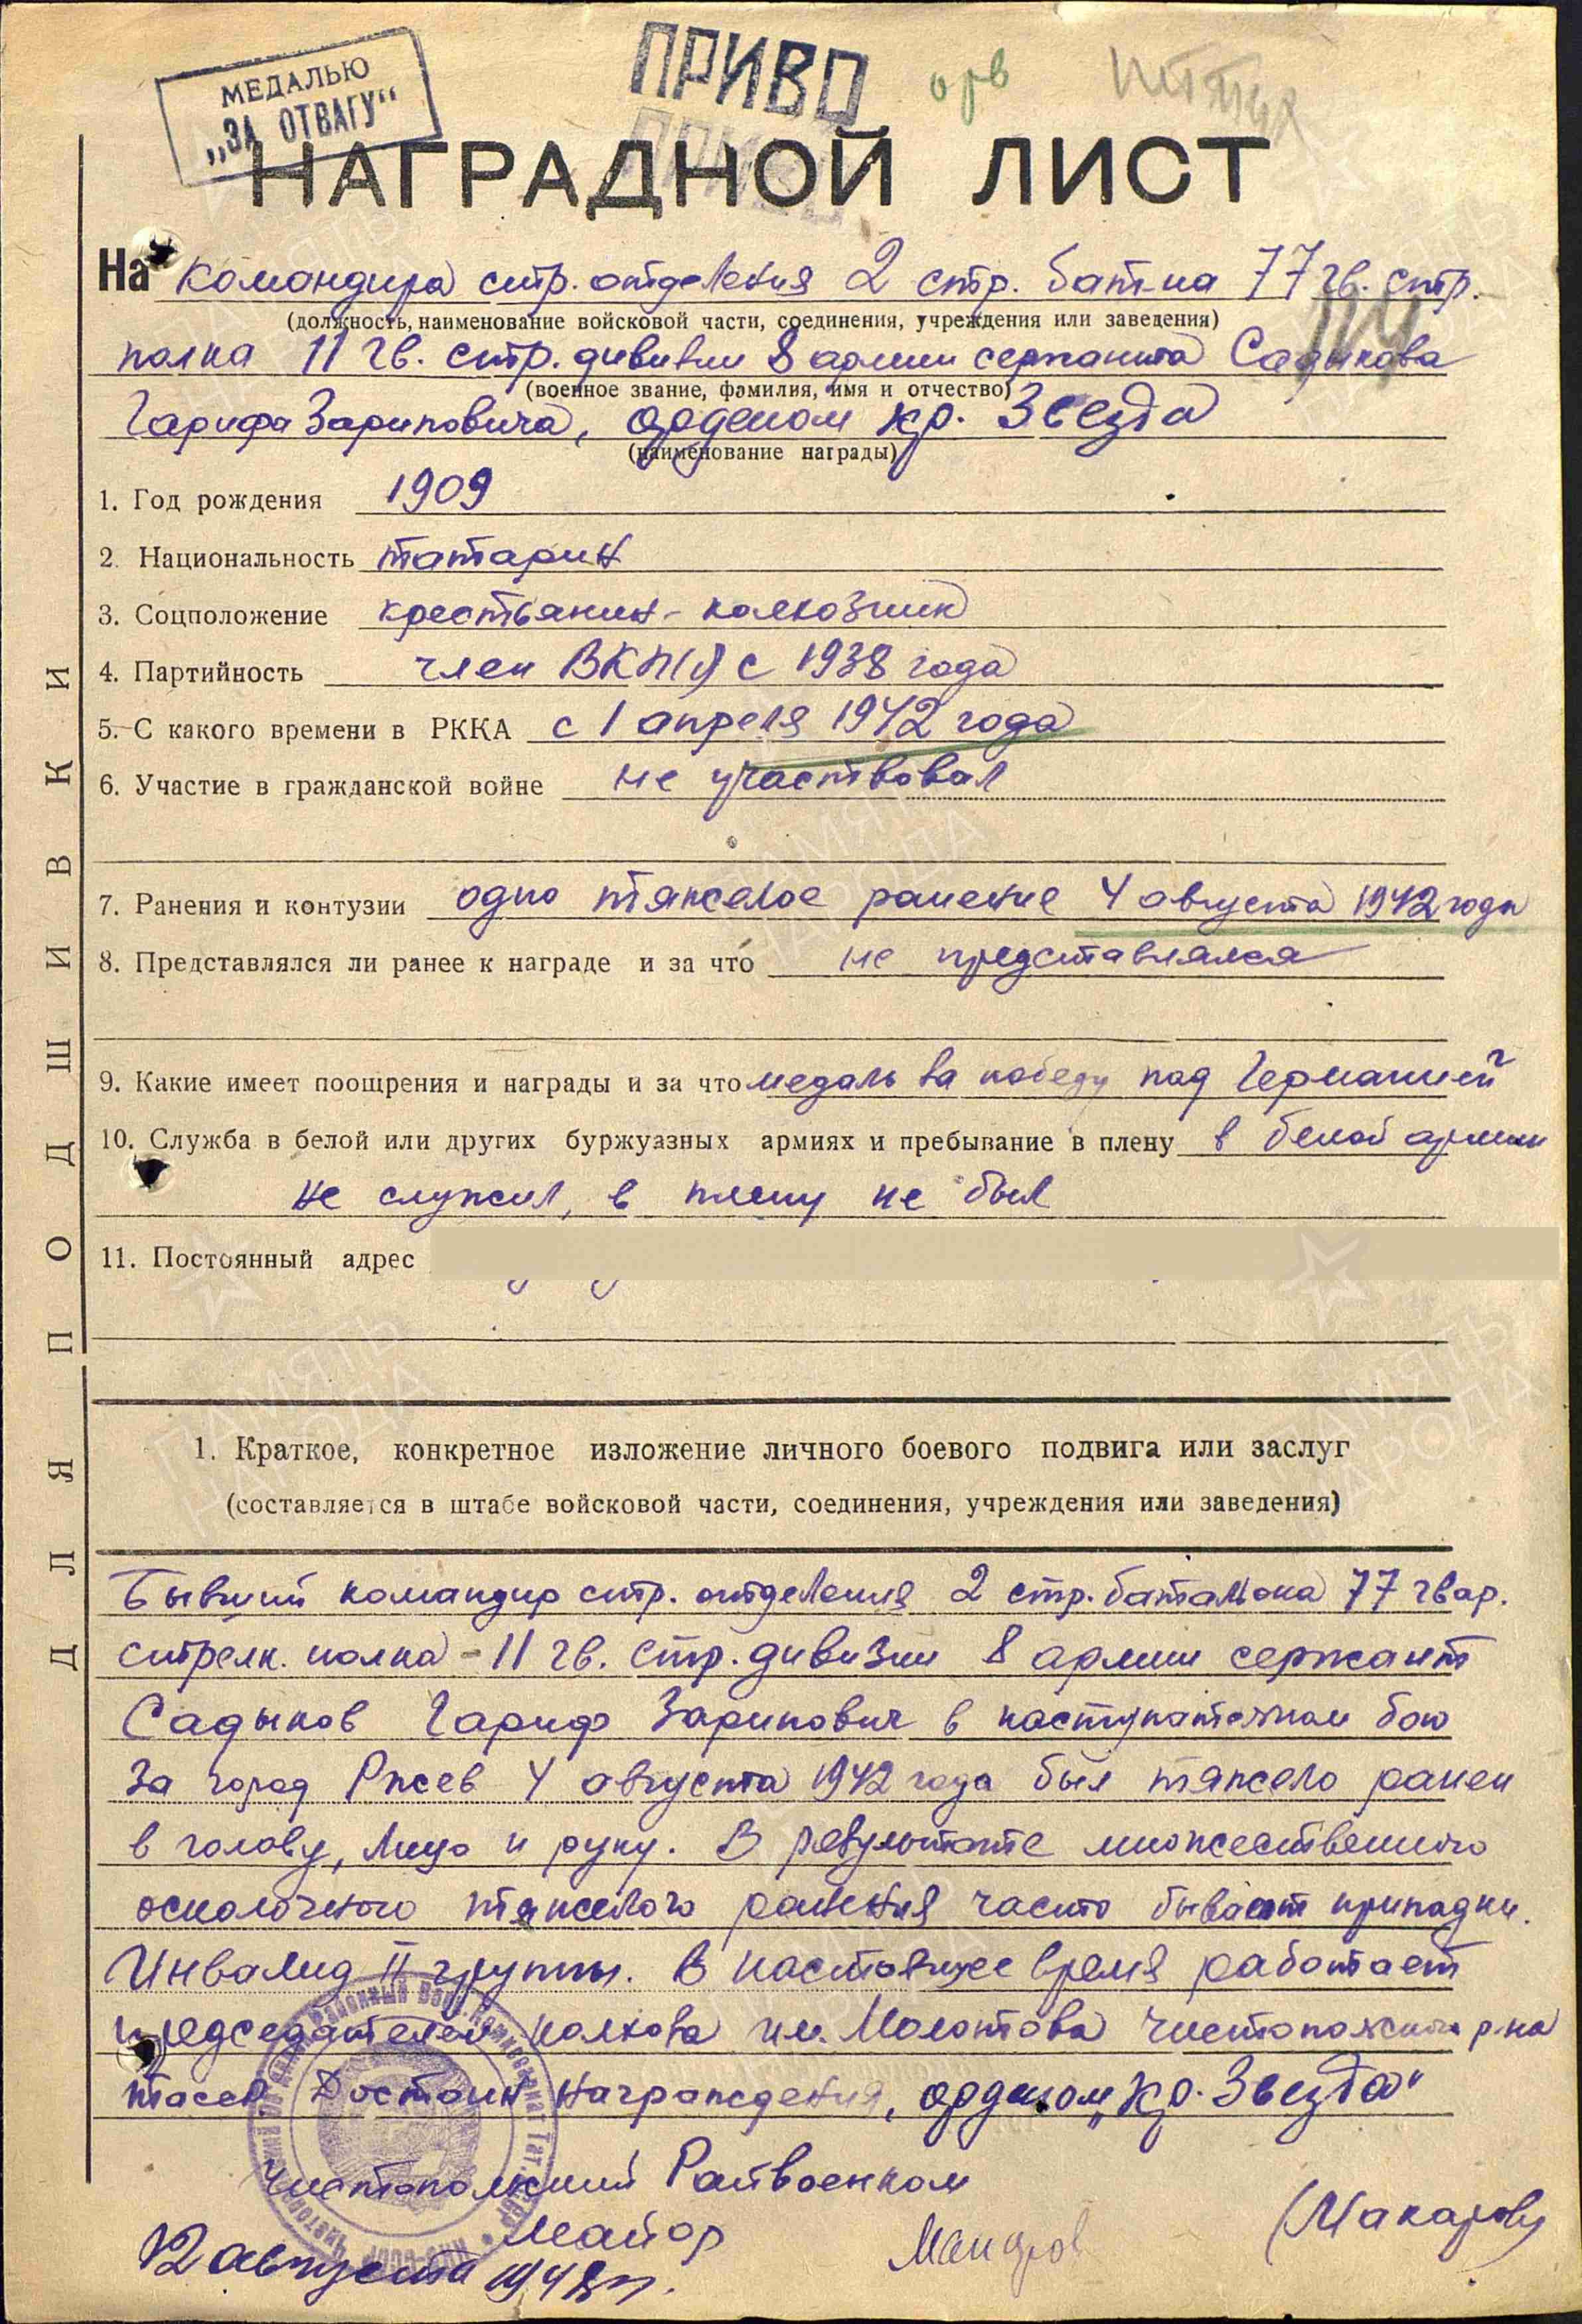 МЕДАЛЬЮ
„ЗА ОТВАГУ“
ПРИВО
НАГРАДНОЙ ЛИСТ
На командира стр. отделения 2 стр. бат-на 77 гв. стр.
(должность, наименование войсковой части, соединения, учреждения или заведения)
полка 11 гв. стр. дивизии 8 армии сержанта Садыкова
(военное звание, фамилия, имя и отчество)
Гарифа Зариповича, орденом кр. Звезда
(наименование награды)
1. Год рождения 1909
2. Национальность татарин
3. Соцположение крестьянин-колхозник
4. Партийность член ВКП(б) с 1938 года
5. С какого времени в РККА с 1 апреля 1942 года
6. Участие в гражданской войне не участвовал
7. Ранения и контузии одно тяжелое ранение 4 августа 1942 года
8. Представлялся ли ранее к награде и за что не представлялся
9. Какие имеет поощрения и награды и за что медаль за победу над Германией
10. Служба в белой или других буржуазных армиях и пребывание в плену в белой армии
не служил, в плену не был
11. Постоянный адрес
1. Краткое, конкретное изложение личного боевого подвига или заслуг
(составляется в штабе войсковой части, соединения, учреждения или заведения)
Бывший командир стр. отделения 2 стр. баталиона 77 гвар.
стрелк. полка - 11 гв. стр. дивизии 8 армии сержант
Садыков Гариф Зарипович в наступательном бою
за город Ржев 4 августа 1942 года был тяжело ранен
в голову, лицо и руку. В результате множественного
осколочного тяжелого ранения часто бывают припадки.
Инвалид II группы. В настоящее время работает
председателем колхоза им. Молотова Чистопольского р-на
ТАССР. Достоин награждения, орденом „Кр. Звезда“
Чистопольский Райвоенком
майор
(Макаров)
12 августа
ДЛЯ ПОДШИВКИ
ПАМЯТЬ
НАРОДА